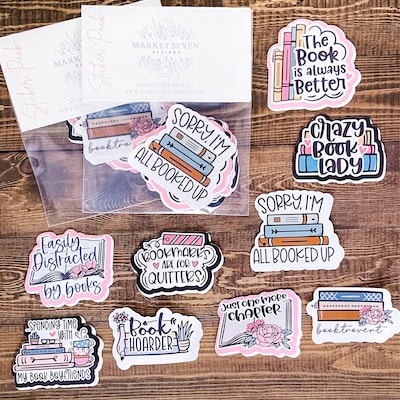 Sticker Pack
Sticker Pack
MARKET SEVEN
DESIGNS
SORRY I'M
ALL BOOKED UP
booktrovert
The
Book
is always
Better
CRAZY
BOOK
LADY
SORRY I'M
ALL BOOKED UP
Easily
Distracted
by books
BOOKMARKS
ARE FOR
QUITTERS
JUST ONE MORE
CHAPTER
booktrovert
SPENDING TIME
WITH
MY BOOK BOYFRIENDS
Book
HOARDER